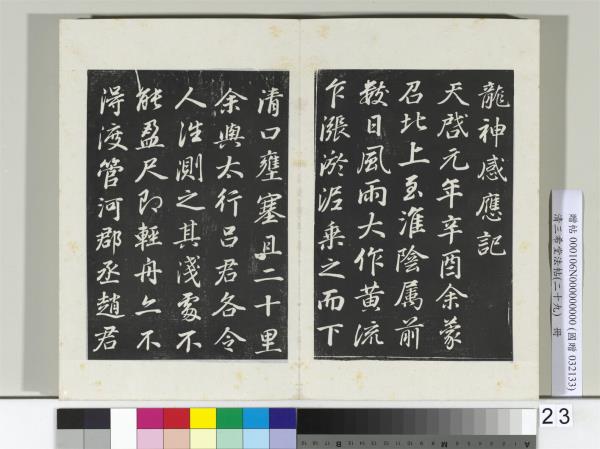 龍神感應記
天啓元年辛酉余蒙
召北上至淮陰属前
数日風雨大作黄流
乍漲淤泥乗之而下
清口壅塞且二十里
余與太行吕君各令
人往測之其淺處不
能盈尺即輕舟亦不
得渡管河郡丞趙君
贈帖 000106N000000000 (國贈 032133)
清三希堂法帖(二十九) 冊
23